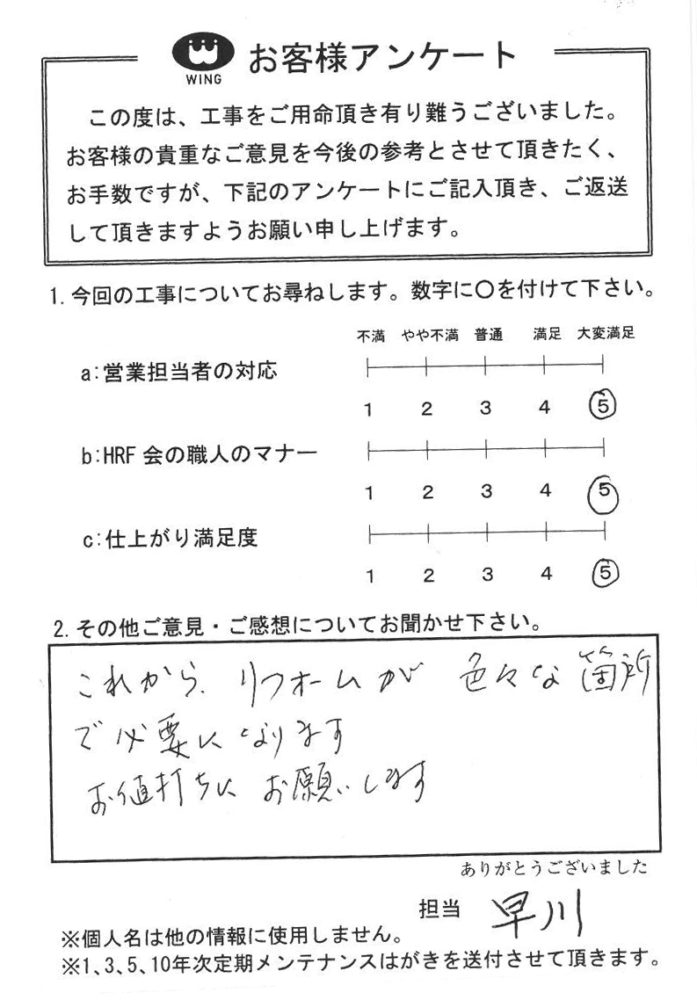 WING
お客様アンケート
この度は、工事をご用命頂き有り難うございました。
お客様の貴重なご意見を今後の参考とさせて頂きたく、
お手数ですが、下記のアンケートにご記入頂き、ご返送
して頂きますようお願い申し上げます。
1. 今回の工事についてお尋ねします。数字に〇を付けて下さい。
不満 やや不満 普通 満足 大変満足
a:営業担当者の対応
1 2 3 4 5
b:HRF 会の職人のマナー
1 2 3 4 5
c:仕上がり満足度
1 2 3 4 5
2. その他ご意見・ご感想についてお聞かせ下さい。
これから、リフォームが 色々な箇所
で必要になります
お値打ちに お願いします
ありがとうございました
担当 早川
※個人名は他の情報に使用しません。
※1、3、5、10年次定期メンテナンスはがきを送付させて頂きます。